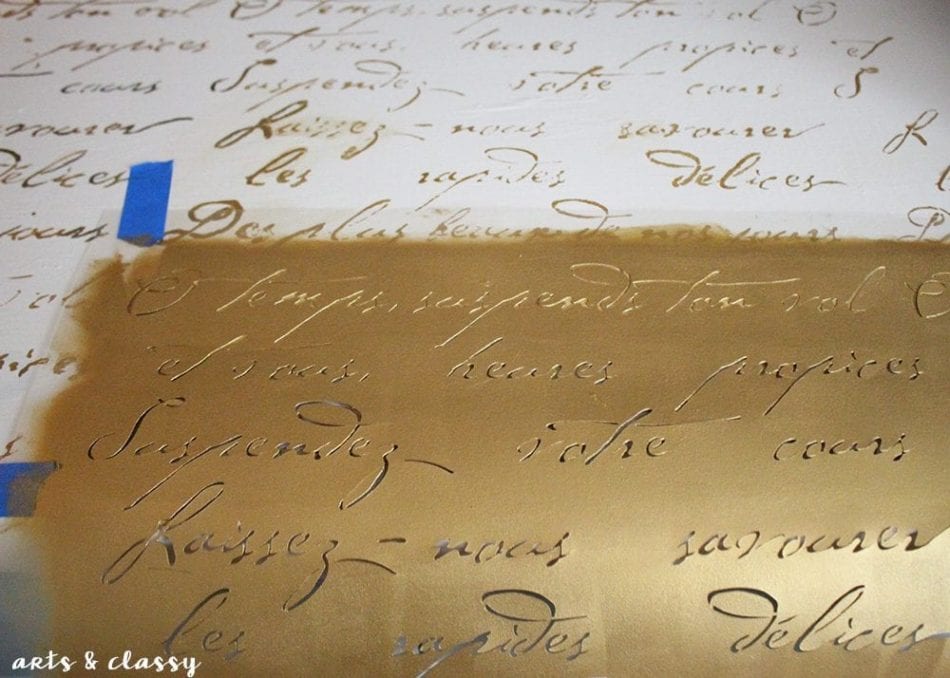 temps, suspends ton vol Ô
propices et vous, heures propices et
cours Suspendez votre cours S
savourer Laissez-nous savourer L
délices les rapides délices l
jours Des plus beaux de nos jours D
vol Ô temps, suspends ton vol Ô
et vous, heures propices
Suspendez votre cours
Laissez-nous savourer
les rapides délices
arts & classy